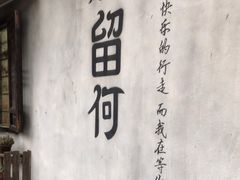 留何
快乐的行走 而我在等